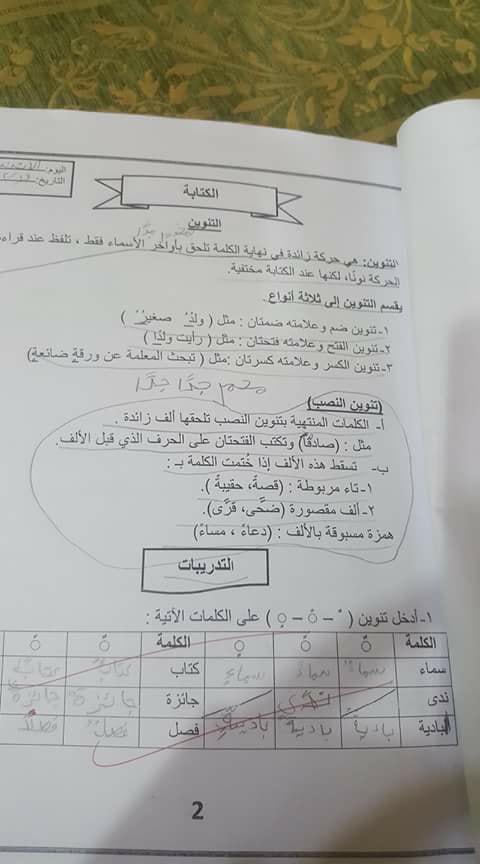 اليوم:
التاريخ:
الكتابة
التنوين
التنوين: هي حركة زائدة في نهاية الكلمة تلحق بأواخر الأسماء فقط ، تلفظ عند قراءة
الحركة نونًا، لكنها عند الكتابة مختفية.
يقسم التنوين إلى ثلاثة أنواع.
١- تنوين ضم وعلامته ضمتان : مثل ( ولدٌ صغيرٌ )
٢- تنوين الفتح وعلامته فتحتان : مثل ( رأيت ولدًا )
٣- تنوين الكسر وعلامته كسرتان :مثل ( تبحث المعلمة عن ورقةٍ ضائعةٍ)
مهم جدًا جدًا
(تنوين النصب)
أ- الكلمات المنتهية بتنوين النصب تلحقها ألف زائدة .
مثل : (صادقًا) وتكتب الفتحتان على الحرف الذي قبل الألف.
ب- تسقط هذه الألف إذا خُتمت الكلمة بـ :
١- تاء مربوطة : (قصةً، حقيبةً ).
٢- ألف مقصورة (ضحًى، قرًى).
همزة مسبوقة بالألف : (دعاءً ، مساءً)
التدريبات
١- أدخل تنوين ( ًـ – ٌـ – ٍـ ) على الكلمات الآتية :
الكلمة الكلمة
سماء سماءٌ سماءً سماءٍ كتاب كتابٌ
ندى جائزة جائزةٌ جائزةً
البادية باديةٌ باديةً باديةٍ فصل فصلٌ فصلًا
2